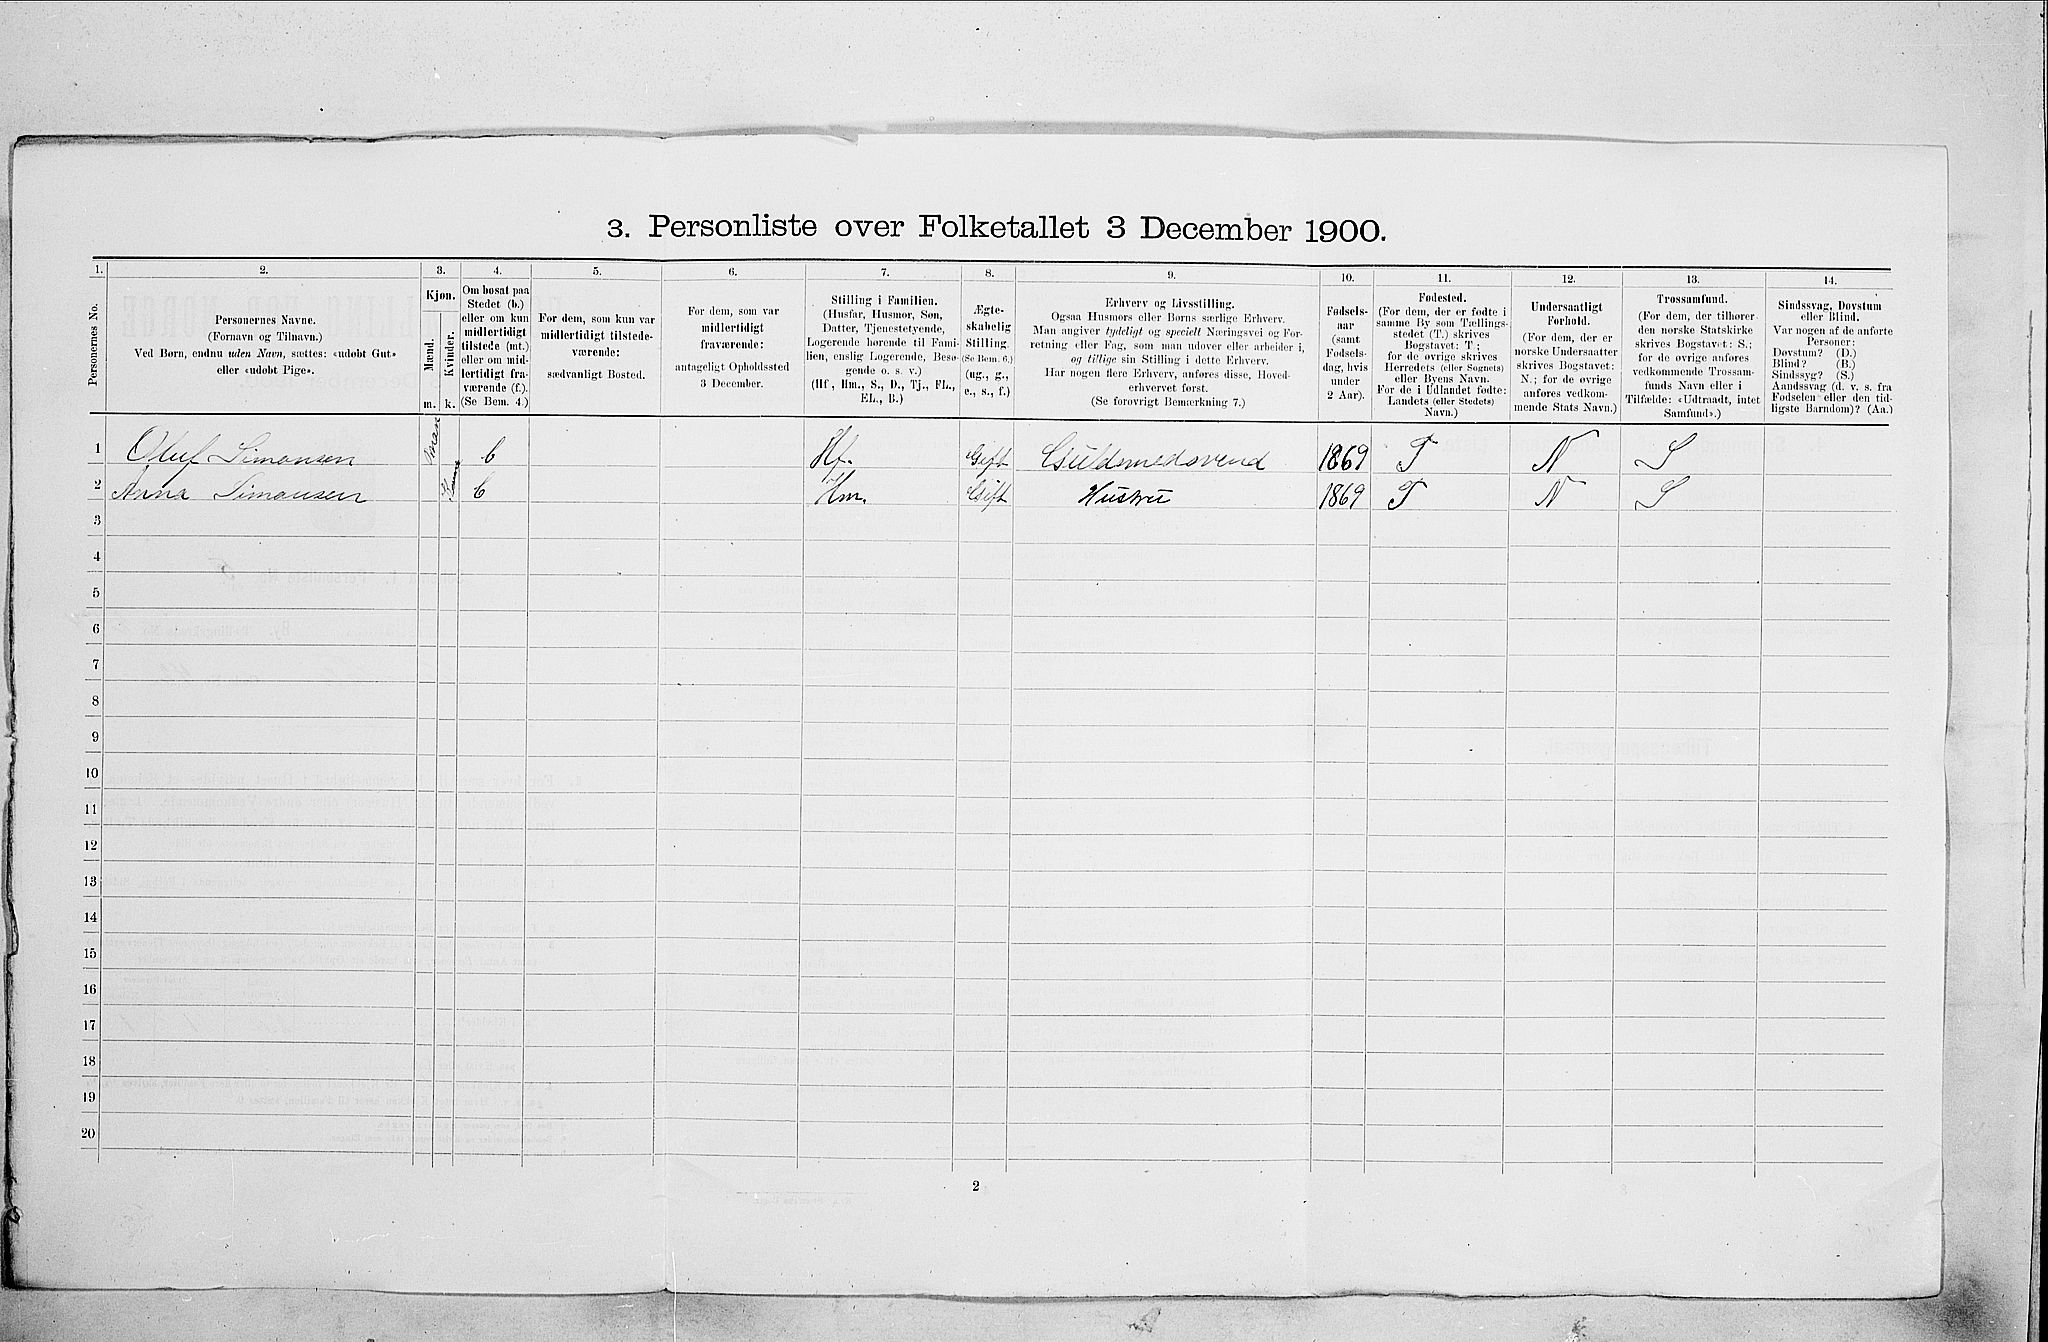 3. Personliste over Folketallet 3 December 1900.
1. 2. 3. 4. 5. 6. 7. 8. 9. 10. 11. 12. 13. 14.
Personernes No.
Personernes Navne.
(Fornavn og Tilnavn.)
Ved Børn, endnu uden Navn, sættes: «udøbt Gut»
eller «udøbt Pige».
Kjøn.
Mænd.
Kvinder.
m. k.
Om bosat paa
Stedet (b.)
eller om kun
midlertidigt
tilstede (mt.)
eller om mid-
lertidigt fra-
værende (f.).
(Se Bem. 4.)
For dem, som kun var
midlertidigt tilstede-
værende:
sædvanligt Bosted.
For dem, som var
midlertidigt
fraværende:
antageligt Opholdssted
3 December.
Stilling i Familien.
(Husfar, Husmor, Søn,
Datter, Tjenestetyende,
Logerende hørende til Fami-
lien, enslig Logerende, Besø-
gende o. s. v.)
(Hf., Hm., S., D., Tj., FL.,
EL., B.)
Ægte-
skabelig
Stilling.
(Se Bem. 6.)
(ug., g.,
e., s., f.)
Erhverv og Livsstilling.
Ogsaa Husmors eller Børns særlige Erhverv.
Man angiver tydeligt og specielt Næringsvei og For-
retning eller Fag, som man udøver eller arbeider i,
og tillige sin Stilling i dette Erhverv.
Har nogen flere Erhverv, anføres disse, Hoved-
erhvervet først.
(Se forøvrigt Bemærkning 7.)
Fødsels-
aar
(samt
Fødsels-
dag, hvis
under
2 Aar).
Fødested.
(For dem, der er fødte i
samme By som Tællings-
stedet (T.) skrives
Bogstavet: T;
for de øvrige skrives
Herredets (eller Sognets)
eller Byens Navn.
For de i Udlandet fødte:
Landets (eller Stedets)
Navn.)
Undersaatligt
Forhold.
(For dem, der er
norske Undersaatter
skrives Bogstavet:
N.; for de øvrige
anføres vedkom-
mende Stats Navn.)
Trossamfund.
(For dem, der tilhører
den norske Statskirke
skrives Bogstavet: S.;
for de øvrige anføres
vedkommende Trossam-
funds Navn eller i
Tilfælde: «Udtraadt, intet
Samfund».)
Sindssvag, Døvstum
eller Blind.
Var nogen af de anførte
Personer:
Døvstum? (D.)
Blind? (B.)
Sindssyg? (S.)
Aandssvag (d. v. s. fra
Fødselen eller den tid-
ligste Barndom)? (Aa.)
1 Oluf Simonsen b Hf. Gift Guldsmedsvend 1869 T N S
2 Anna Simonsen b Hm. Gift Hustru 1869 T N S
3
4
5
6
7
8
9
10
11
12
13
14
15
16
17
18
19
20
2